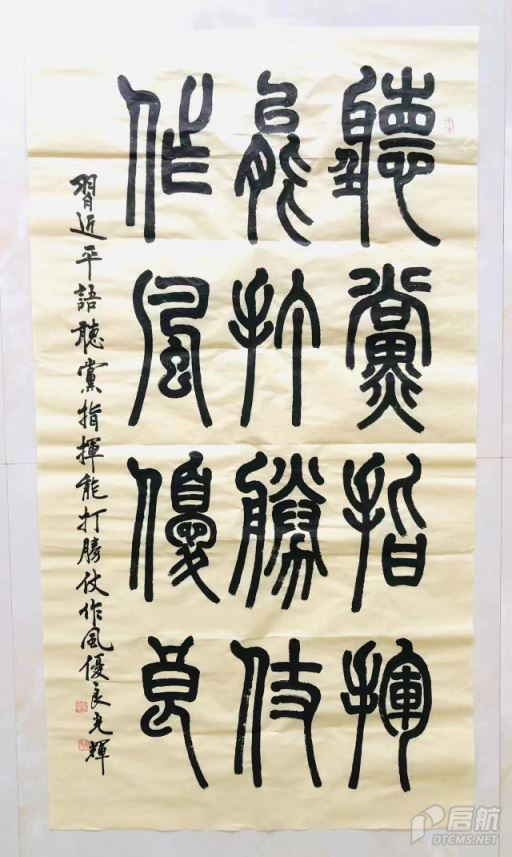 聽黨指揮
能打勝仗
作風優良
習近平語聽黨指揮能打勝仗作風優良光輝
启航
DTCMS.NET